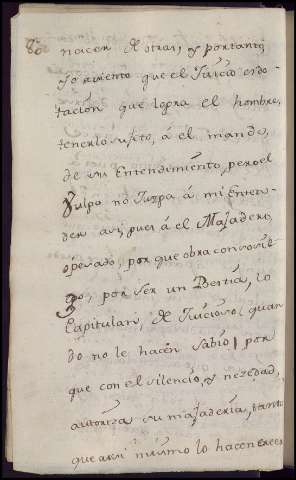 80
nacen de otras, y portanto,
yo asiento que el Juicio es do-
tacion que logra el hombre,
tenerlo sujeto, á el mando,
de un Entendimiento, pero el
Vulgo no Juzga á mi Enten-
der asi, pues á el Majadero,
pesado, por que obra con sosie-
go, por ser un Bestia, lo
Capitulan, de Juicioso, quan-
do no le hacen Sabio, por
que con el silencio, y nezedad,
autoriza su majaderia, tanto
que assi mismo lo hacen